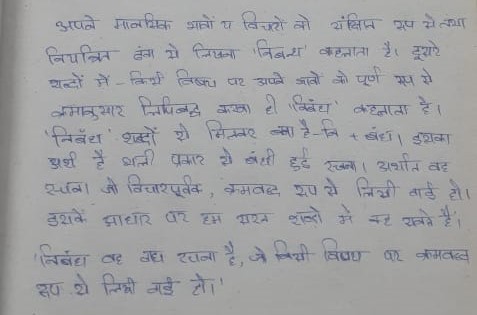 अपने मानसिक भावों व विचारों को संक्षिप्त रूप से तथा
नियन्त्रित ढंग से लिखना 'निबन्ध' कहलाता है। दूसरे
शब्दों में - किसी विषय पर अपने भावों को पूर्ण रूप से
क्रमानुसार लिपिबद्ध करना ही 'निबंध' कहलाता है।
'निबंध' शब्दों से मिलकर बना है-नि + बंध। इसका
अर्थ है भली प्रकार से बंधी हुई रचना। अर्थात वह
रचना जो विचारपूर्वक, क्रमबद्ध रूप से लिखी गई हो।
इसके आधार पर हम सरल शब्दों में कह सकते हैं।
'निबंध वह गद्य रचना है, जो किसी विषय पर क्रमबद्ध
रूप से लिखी गई हो।'